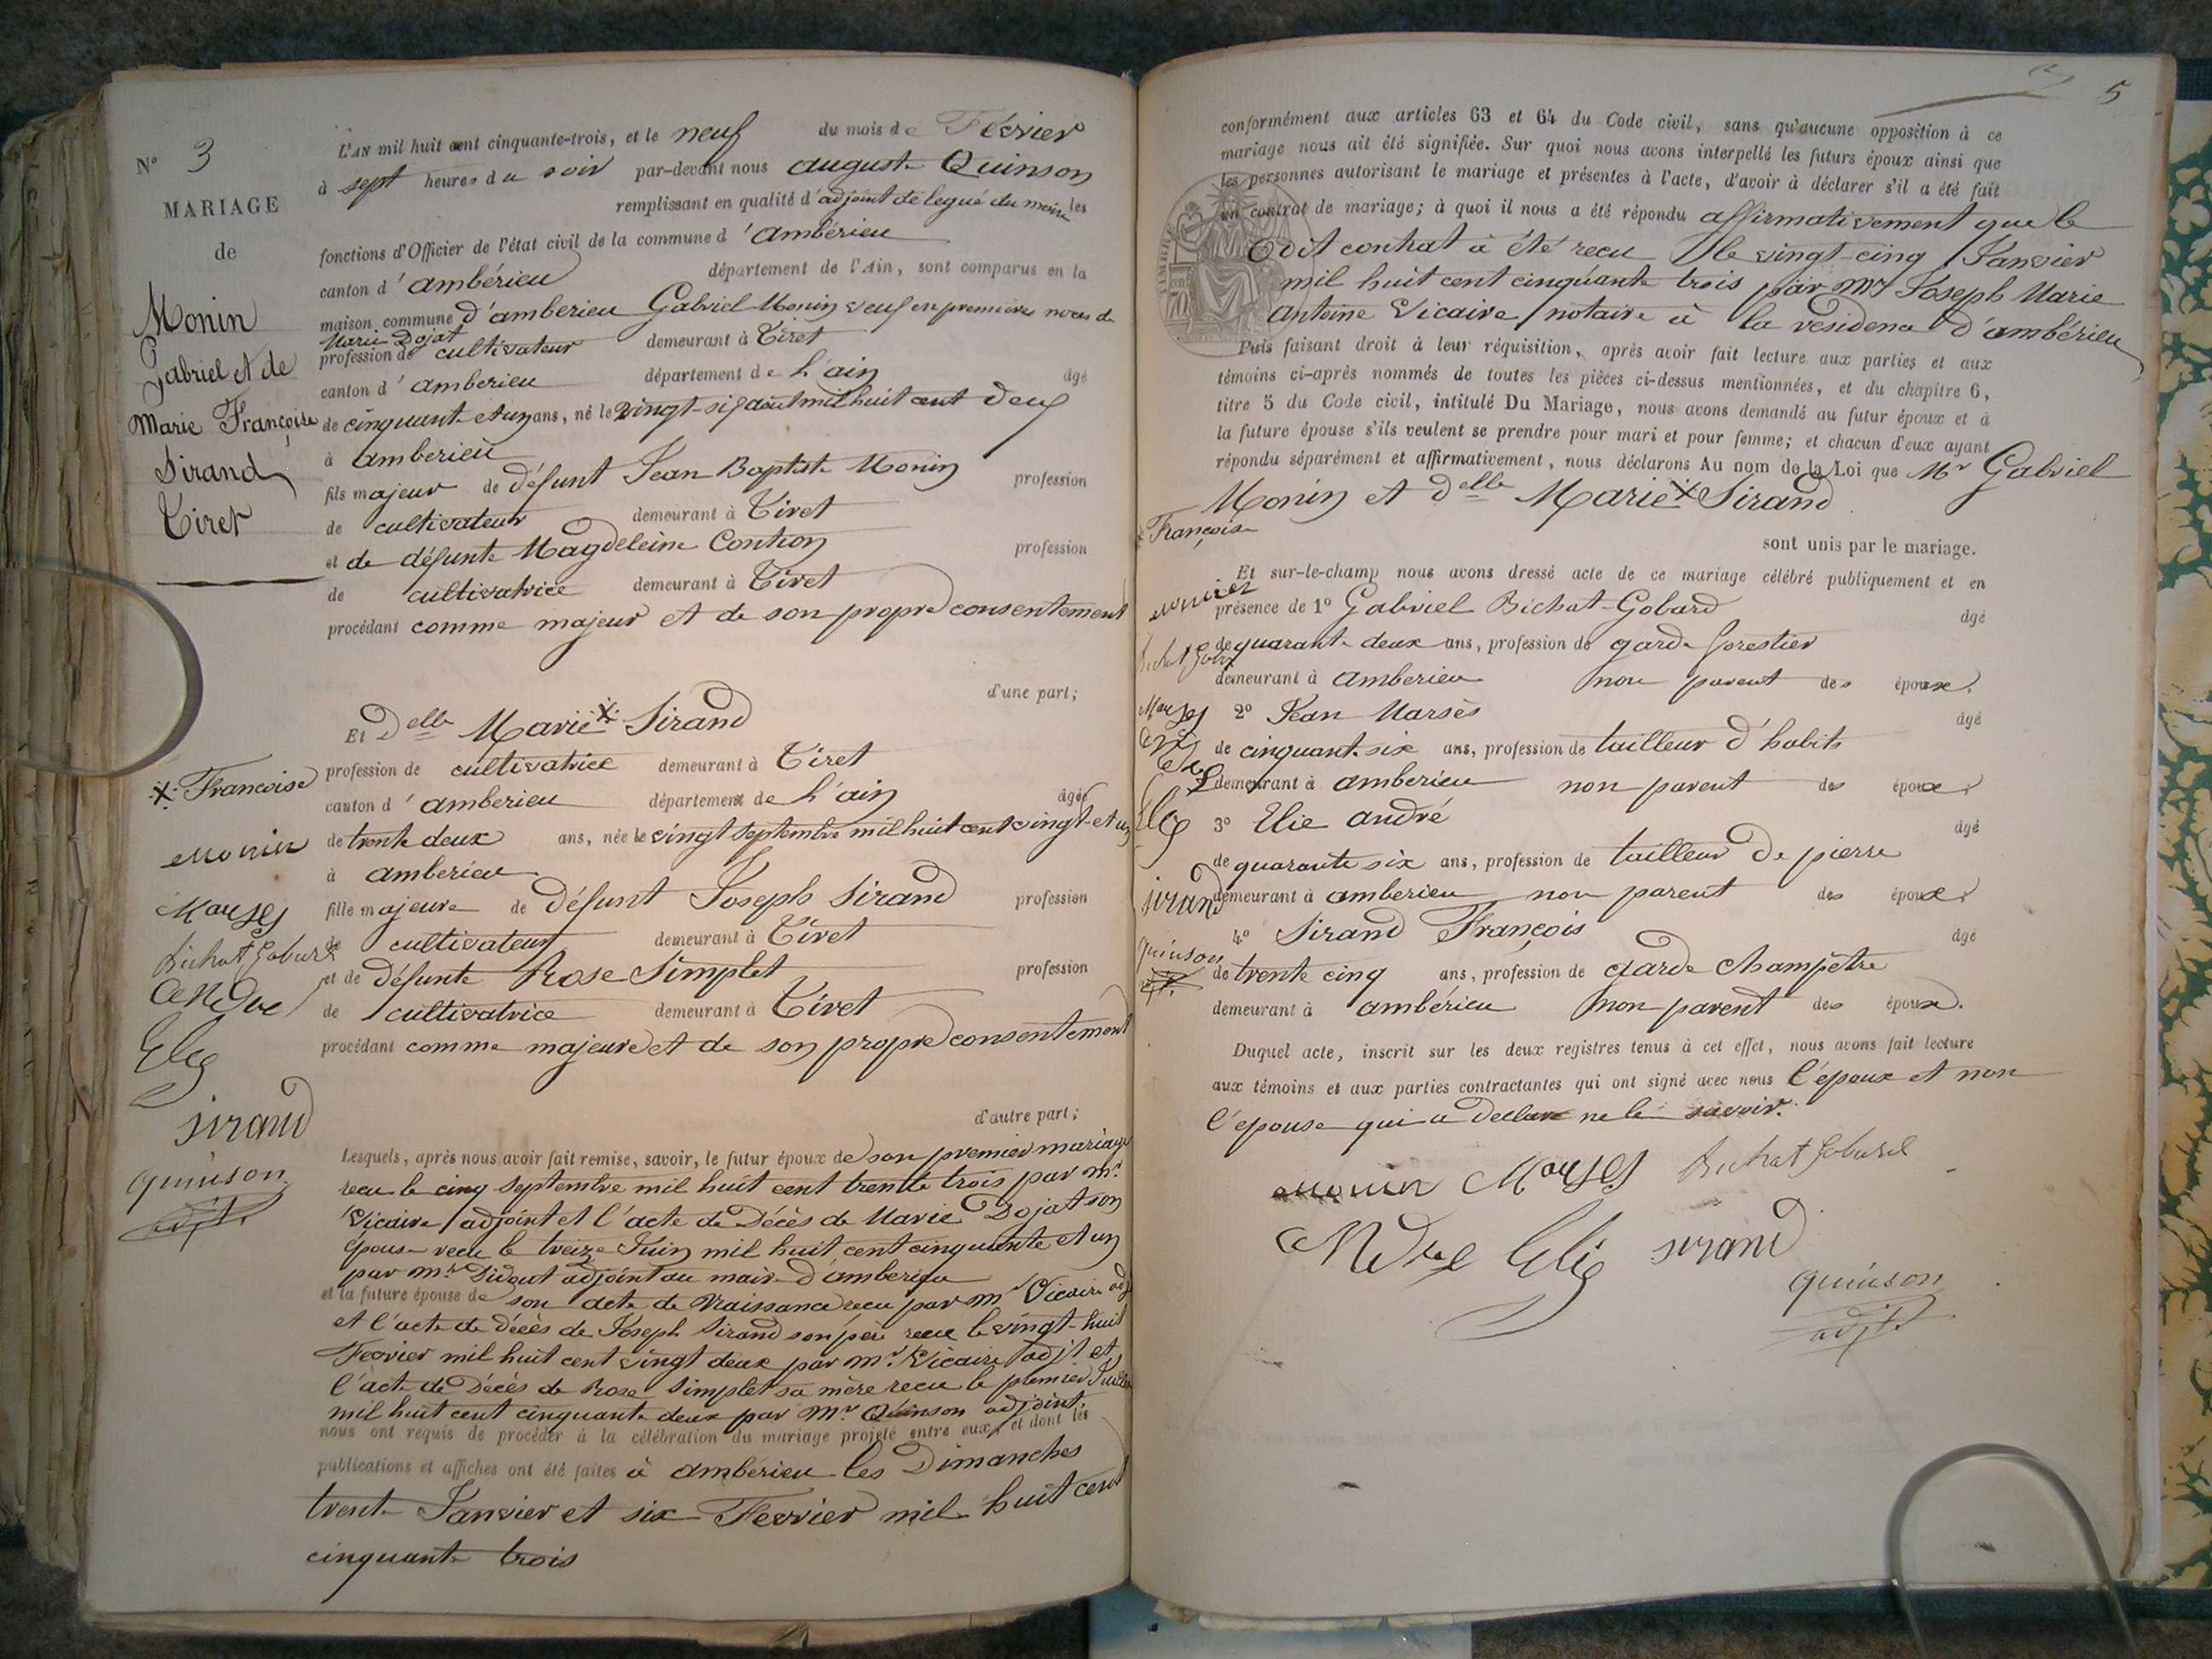 N° 3
MARIAGE
de
Monin
Gabriel et de
Marie Françoise
Sirand
Tiret
L'AN mil huit cent cinquante-trois, et le neuf du mois de Février
à sept heures du soir par-devant nous auguste Quinson
remplissant en qualité d'adjoint délegué du maire les
fonctions d'Officier de l'état civil de la commune d'ambérieu
canton d'ambérieu département de l'Ain, sont comparus en la
maison commune d'amberieu Gabriel Monin veuf en premières noces de
Marie Dojat
profession de cultivateur demeurant à Tiret
canton d'amberieu département de L'ain âgé
de cinquante et un ans, né le vingt-six août mil huit cent deux
à amberieu
fils majeur de défunt Jean Baptiste Monin profession
de cultivateur demeurant à Tiret
et de défunte Magdeleine Contion profession
de cultivatrice demeurant à Tiret
procédant comme majeur et de son propre consentement
d'une part;
Et Delle Marie X Sirand
profession de cultivatrice demeurant à Tiret
X Francoise
canton d'amberieu département de L'ain âgée
de trente deux ans, née le vingt septembre mil huit cent vingt et un
monin
à amberieu
fille majeure de défunt Joseph Sirand profession
Marses
de cultivateur demeurant à Tiret
Bichat Gobard
et de défunte Rose Simplet profession
andre
de cultivatrice demeurant à Tiret
procédant comme majeure et de son propre consentement
Elie
sirand
d'autre part;
quinson
adjt.
Lesquels, après nous avoir fait remise, savoir, le futur époux de son premier mariage
recu le cinq septembre mil huit cent trente trois par Mr.
Vicaire adjoint et l'acte de Décès de Marie Dojat son
épouse recu le treize Juin mil huit cent cinquante et un
par Mr. adjoint au maire d'amberieu
et la future épouse de son acte de Naissance recu par Mr Vicaire adj
et l'acte de décès de Joseph Sirand son père recu le vingt-huit
Fevrier mil huit cent vingt deux par Mr. Vicaire adjt et
l'acte de Décès de Rose Simplet sa mère recu le premier Juillet
mil huit cent cinquante deux par Mr Quinson adjoint.
nous ont requis de procéder à la célébration du mariage projeté entre eux, et dont les
publications et affiches ont été faites à ambérieu les Dimanches
trente Janvier et six Fevrier mil huit cent
cinquante trois
5
conformément aux articles 63 et 64 du Code civil, sans qu'aucune opposition à ce
mariage nous ait été signifiée. Sur quoi nous avons interpellé les futurs époux ainsi que
les personnes autorisant le mariage et présentes à l'acte, d'avoir à déclarer s'il a été fait
un contrat de mariage; à quoi il nous a été répondu affirmativement que le
dit contrat à été recu le vingt-cinq Janvier
mil huit cent cinquante trois par Mr Joseph Marie
antoine Vicaire notaire à la residence d'ambérieu
TIMBRE
70
Puis faisant droit à leur réquisition, après avoir fait lecture aux parties et aux
témoins ci-après nommés de toutes les pièces ci-dessus mentionnées, et du chapitre 6,
titre 5 du Code civil, intitulé Du Mariage, nous avons demandé au futur époux et à
la future épouse s'ils veulent se prendre pour mari et pour femme; et chacun d'eux ayant
répondu séparément et affirmativement, nous déclarons Au nom de la Loi que Mr Gabriel
Monin et Delle Marie X Sirand
X Françoise
sont unis par le mariage.
Et sur-le-champ nous avons dressé acte de ce mariage célébré publiquement et en
monier
présence de 1° Gabriel Bichat-Gobard âgé
Bichat Gobard
de quarante deux ans, profession de garde forestier
demeurant à amberieu non parent des époux.
Marses
2° Jean Marses âgé
andre
de cinquante six ans, profession de tailleur d'habits
demeurant à amberieu non parent des époux.
Elie
3° Elie andré âgé
de quarante six ans, profession de tailleur de pierre
sirand
demeurant à amberieu non parent des époux.
4° Sirand François âgé
quinson
adjt.
de trente cinq ans, profession de garde champêtre
demeurant à ambérieu non parent des époux.
Duquel acte, inscrit sur les deux registres tenus à cet effet, nous avons fait lecture
aux témoins et aux parties contractantes qui ont signé avec nous l'époux et non
l'épouse qui a déclaré ne le savoir.
monin Marses Bichat Gobard
andre Elie sirand
quinson
adjt.